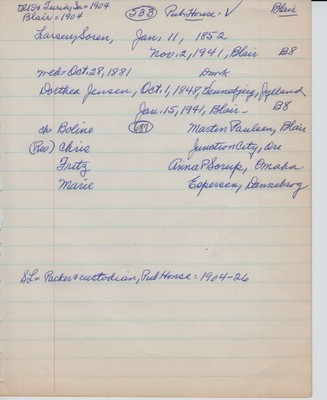 Turin, Ia = 1904
Blair = 1904
533 Pub. House = ✓ Blair
Larsen, Soren, Jan. 11, 1852
Nov. 2, 1941, Blair B8
med = Oct. 28, 1881 Dmrk
Dorthea Jensen, Oct. 1, 1848, Jylland
Jan. 15, 1941, Blair - B8
ch Boline 687 Martin Paulsen, Blair
(Rev) Chris Junction City, Ore
Fritz Anna P Sorup, Omaha
Marie Espersen, Dannebrog
SL = Packer & custodian, Pub House = 1904-26